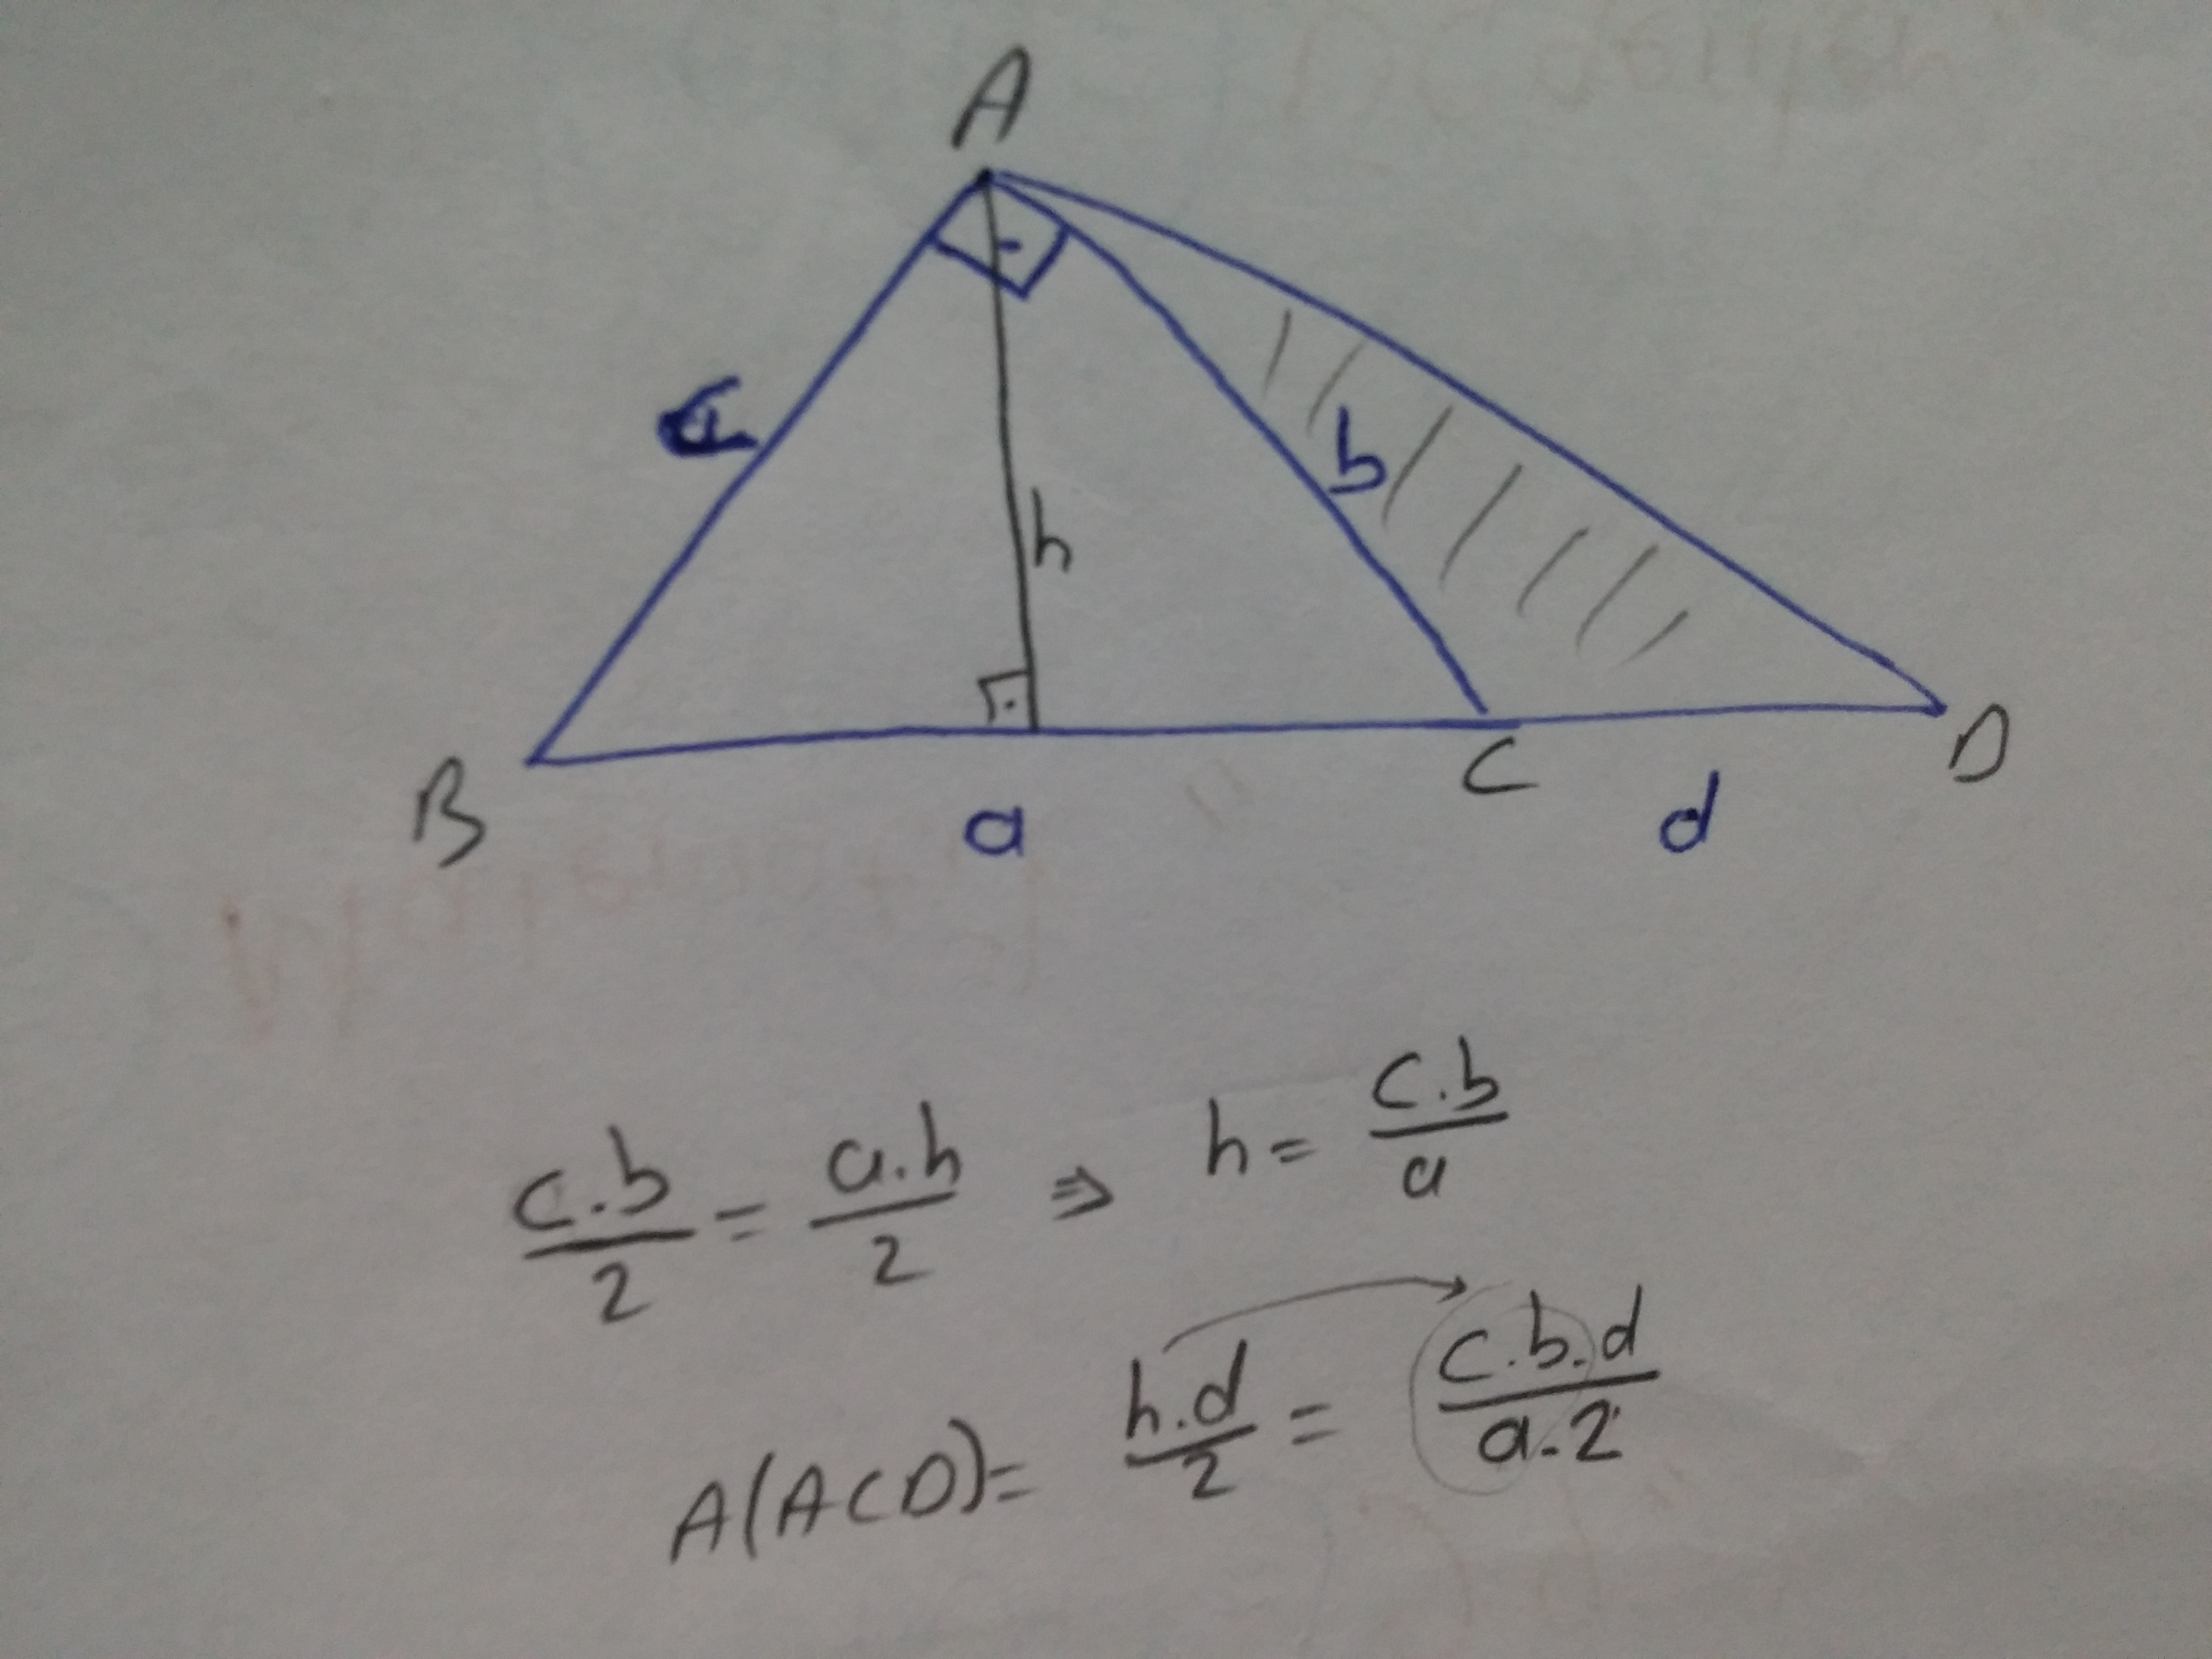 A
c
b
h
B
a
C
d
D
c.b/2 = a.h/2 ⇒ h = c.b/a
A(ACD) = h.d/2 = c.b.d/a.2